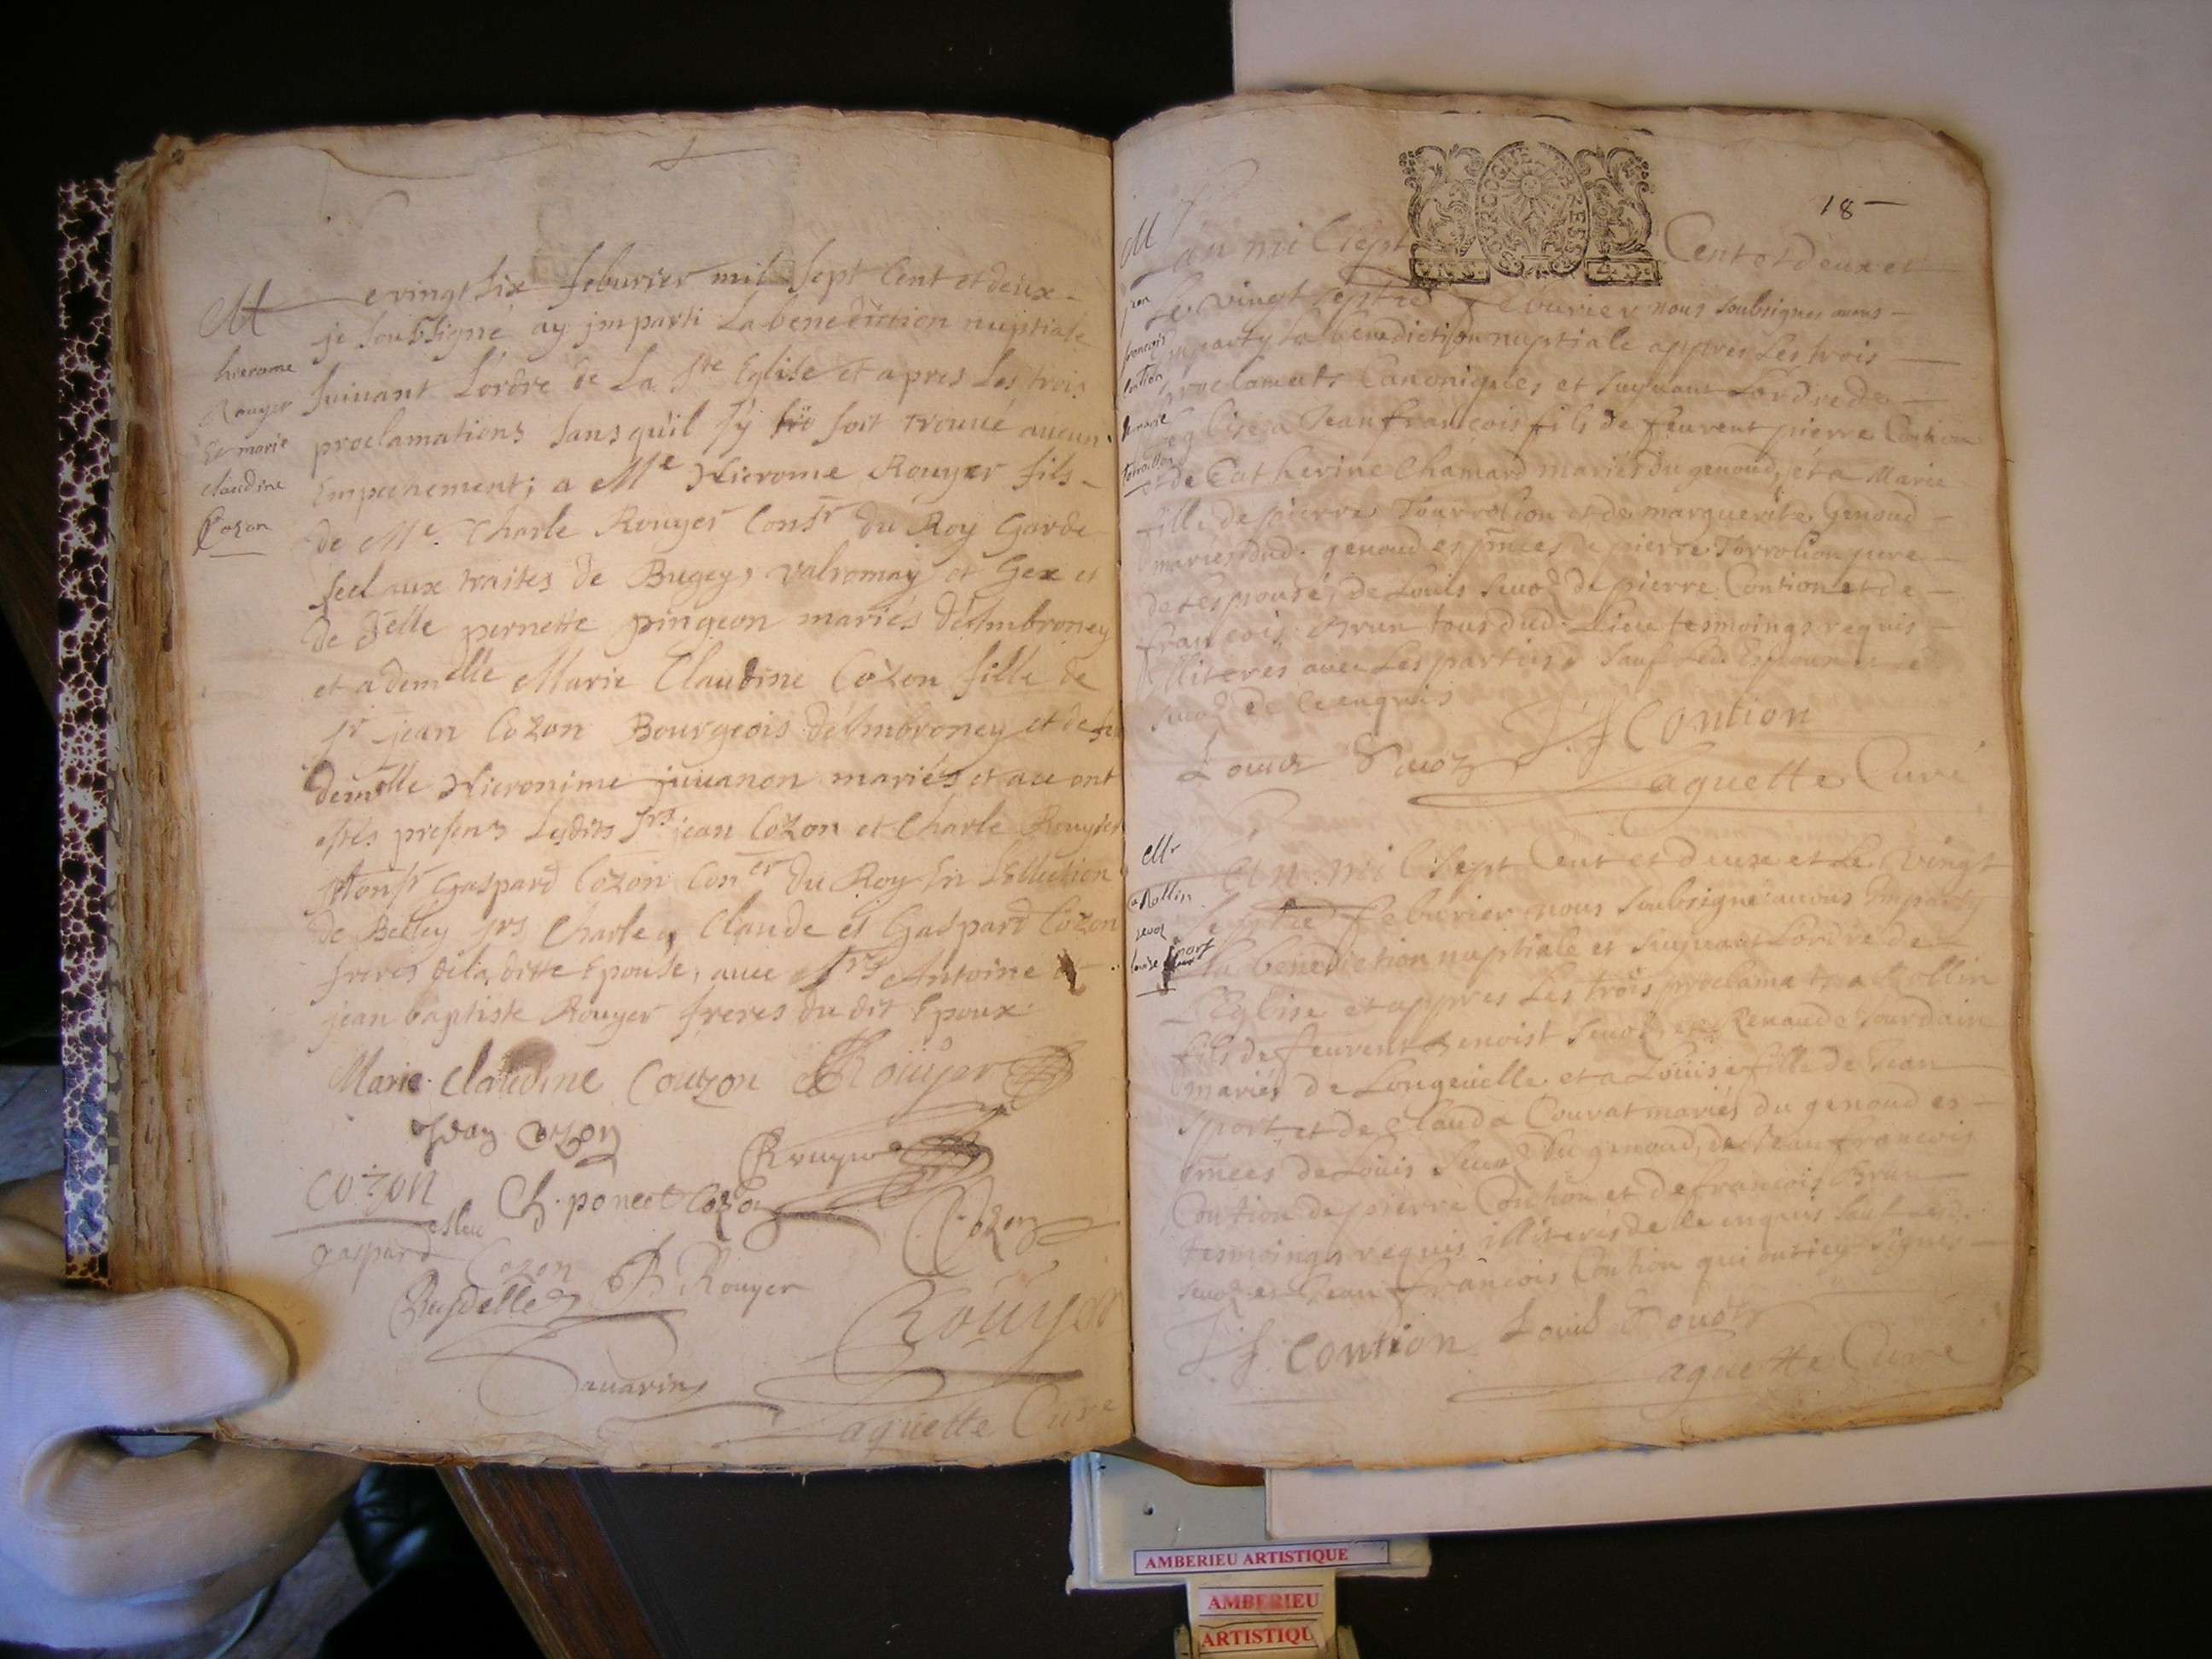 M
hierome
Rouyer
Et marie
claudine
Cozon
Le vingt six feburier mil sept Cent et deux
je soubsigné ay jmparti La benediction nuptiale
suivant L'ordre de La Ste Eglise et apres Les trois
proclamations sans qu'il s'y soit trouué aucun
Empechement; a Me Hierome Rouyer fils
de Me. Charle Rouyer Consr du Roy Garde
seel aux traites de Bugey, valromay et Gex et
de delle pernette pingeon mariés d'Ambroney
et a demelle Marie Claudine Cozon fille de
Sr jean Cozon Bourgeois d'Ambroney et de
demelle Hieronime juuanon mariés et a ce ont
estés presens Lesdits Srs jean Cozon et Charle Rouyer
Monsr Gaspard Cozon Coner du Roy En L'Ellection
de Belley Srs Charle, Claude et Gaspard Cozon
freres de la ditte Epouse, auec Srs Antoine et
jean baptiste Rouyer freres du dit Epoux
Marie Claudine Couzon Roüyer
Jean Cozon
Rouyer
Cozon
esleu
Ch. poncet Cozon
C. Cozon
gaspard Cozon
B Rouyer
Roüyer
Sauarin
Laguette Curé
18
M
jean
francois
Contion
& marie
torrollion
L'an mil sept Cent et deux et
Le vingt septie feburier nous soubsignes auons
Imparty la benediction nuptiale appres Les trois
proclamats Canoniques et suyuant L'ordre de
L'eglise a Jean francois fils de feurent pierre Contion
et de Catherine Chamard mariés du genoud, et a Marie
fille de pierre Tourrolion et de marguerite Genoud
mariés dud. genoud es pnces de pierre Torrolion pere
de lespouse, de Louis Seuoz de pierre Contion et de
francois Brun tous dud. Lieu tesmoings requis
Illiteres auec Les parties Sauf Led. Espoux et Led
Seuoz de ce enquis
Louis Seuoz J. f Contion
Laguette Curé
Mr
a Rollin
seuoz
louise sport
L'an mil sept Cent et deux et Le vingt
septie feburier nous soubsigné auons Imparty
La benediction nuptiale et suyuant L'ordre de
L'Eglise et appres Les trois proclamats a Rollin
fils de feurent Benoist Seuoz et Renaude Jourdain
mariés de Longeuelle et a Louise fille de Jean
Sport et de Clauda Couvat mariés du genoud es
pnces de Louis Seuoz du genoud, de Jean francois
Contion de pierre Contion et de francois Brun
tesmoings requis illiterés de ce enquis Sauf Lesd.
Seuoz et Jean francois Contion qui ont icy signés
J. f. Contion Louis Seuoz
Laguette Curé
AMBERIEU ARTISTIQUE
AMBERIEU
ARTISTIQU